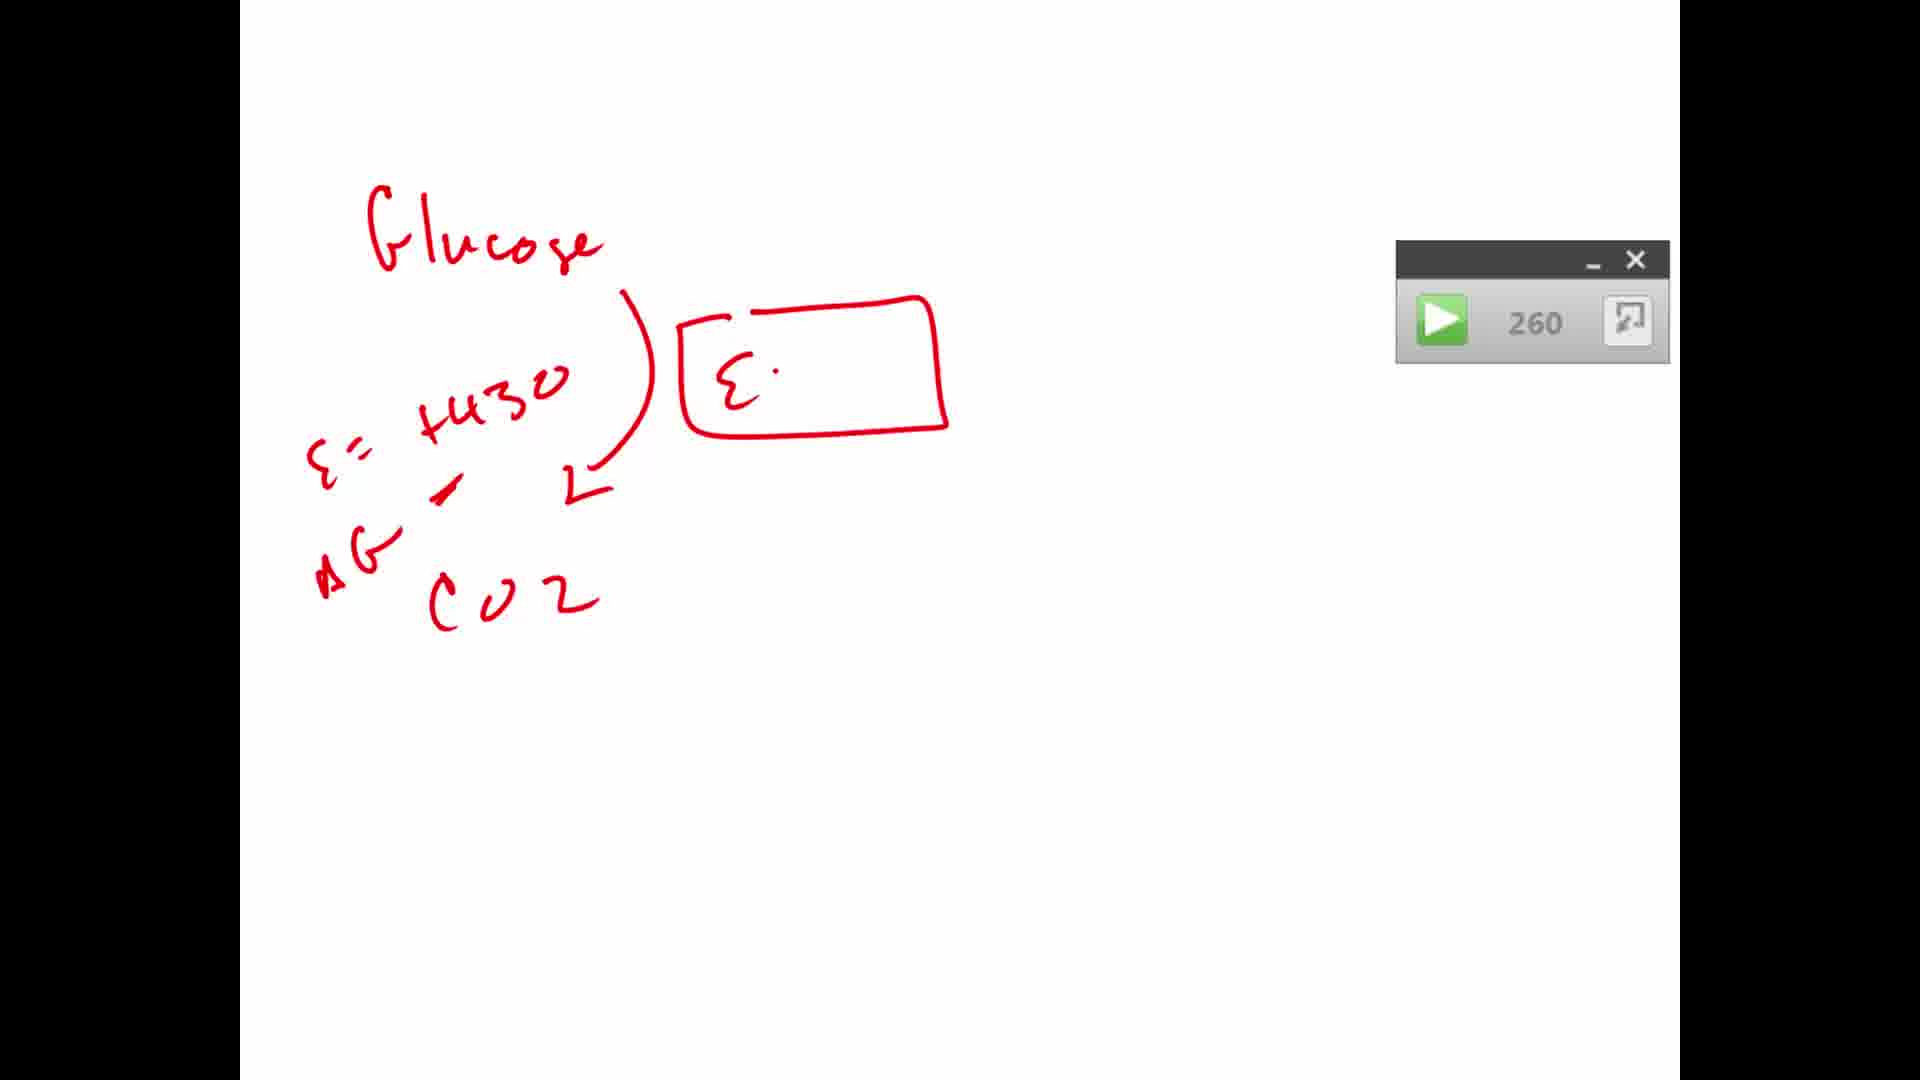 Glucose
ε.
ε= +430
ΔG -
CO2
260